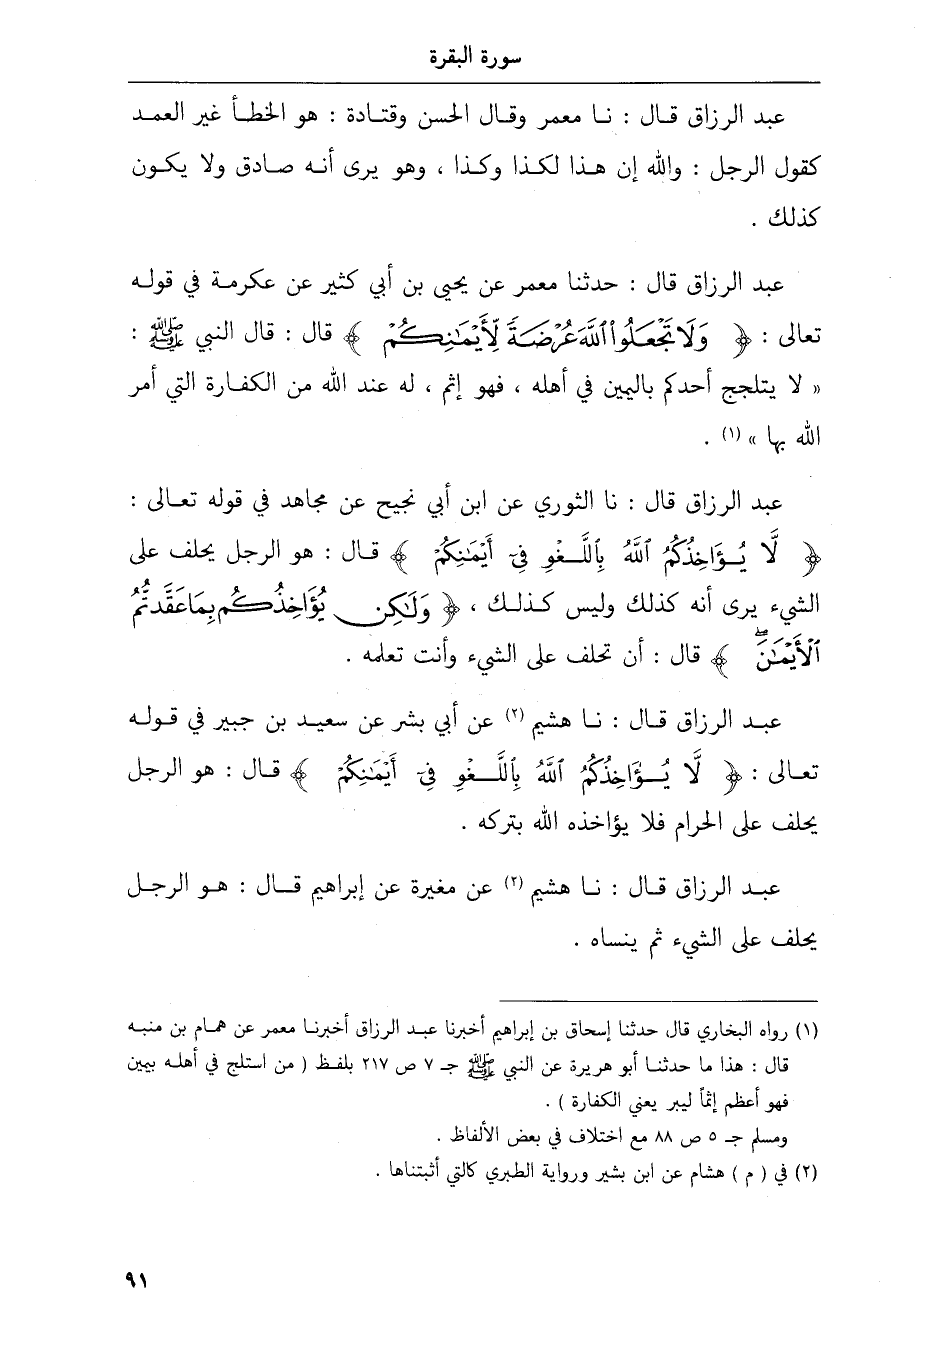 سورة البقرة
عبد الرزاق قال : نا معمر وقال الحسن وقتادة : هو الخطأ غير العمد
كقول الرجل : والله إن هذا لكذا وكذا ، وهو يرى أنه صادق ولا يكون
كذلك .
عبد الرزاق قال : حدثنا معمر عن يحيى بن أبي كثير عن عكرمة في قوله
تعالى : ﴿ وَلَا تَجْعَلُوا۟ ٱللَّهَ عُرْضَةً لِّأَيْمَـٰنِكُمْ ﴾ قال : قال النبي ﷺ :
« لا يتلجج أحدكم باليمين في أهله ، فهو إثم ، له عند الله من الكفارة التي أمر
الله بها » (١) .
عبد الرزاق قال : نا الثوري عن ابن أبي نجيح عن مجاهد في قوله تعالى :
﴿ لَّا يُؤَاخِذُكُمُ ٱللَّهُ بِٱللَّغْوِ فِىٓ أَيْمَـٰنِكُمْ ﴾ قال : هو الرجل يحلف على
الشيء يرى أنه كذلك وليس كذلك ، ﴿ وَلَـٰكِن يُؤَاخِذُكُم بِمَا عَقَّدتُّمُ
ٱلْأَيْمَـٰنَ ۖ ﴾ قال : أن تحلف على الشيء وأنت تعلمه .
عبد الرزاق قال : نا هشيم (٢) عن أبي بشر عن سعيد بن جبير في قوله
تعالى : ﴿ لَّا يُؤَاخِذُكُمُ ٱللَّهُ بِٱللَّغْوِ فِىٓ أَيْمَـٰنِكُمْ ﴾ قال : هو الرجل
يحلف على الحرام فلا يؤاخذه الله بتركه .
عبد الرزاق قال : نا هشيم (٢) عن مغيرة عن إبراهيم قال : هو الرجل
يحلف على الشيء ثم ينساه .
(١) رواه البخاري قال حدثنا إسحاق بن إبراهيم أخبرنا عبد الرزاق أخبرنا معمر عن همام بن منبه
قال : هذا ما حدثنا أبو هريرة عن النبي ﷺ جـ ٧ ص ٢١٧ بلفظ ( من استلج في أهله بيمين
فهو أعظم إثماً ليبر يعني الكفارة ) .
ومسلم جـ ٥ ص ٨٨ مع اختلاف في بعض الألفاظ .
(٢) في ( م ) هشام عن ابن بشير ورواية الطبري كالتي أثبتناها .
٩١